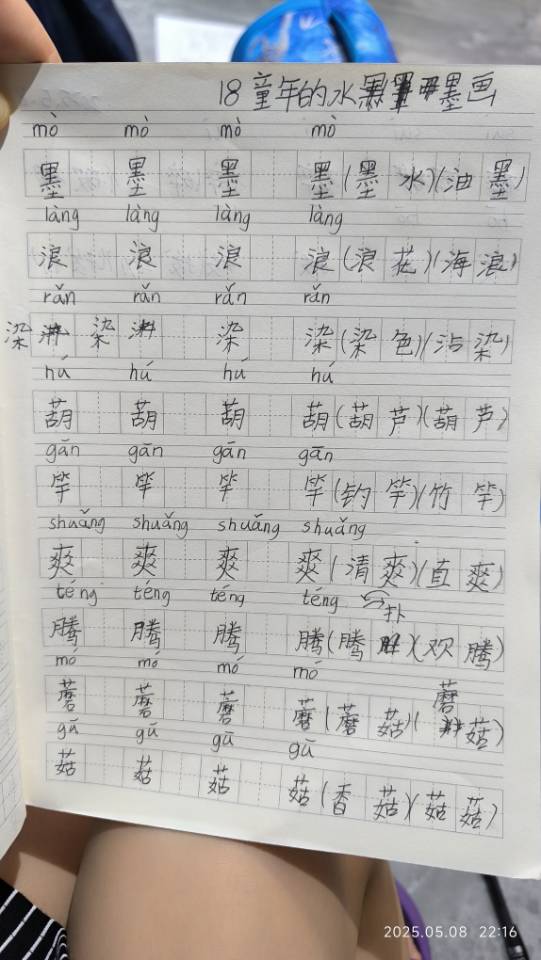 18 童年的水墨画
mò mò mò mò
墨 墨 墨 墨(墨水)(油墨)
làng làng làng làng
浪 浪 浪 浪(浪花)(海浪)
rǎn rǎn rǎn rǎn
染 染 染 染(染色)(沾染)
hú hú hú hú
葫 葫 葫 葫(葫芦)(葫芦)
gān gān gān gān
竿 竿 竿 竿(钓竿)(竹竿)
shuǎng shuǎng shuǎng shuǎng
爽 爽 爽 爽(清爽)(直爽)
téng téng téng téng
扑
腾 腾 腾 腾(腾)(欢腾)
mó mó mó mó
蘑 蘑 蘑 蘑(蘑菇)(蘑菇)
gū gū gū gū
菇 菇 菇 菇(香菇)(菇菇)
2025.05.08 22:16